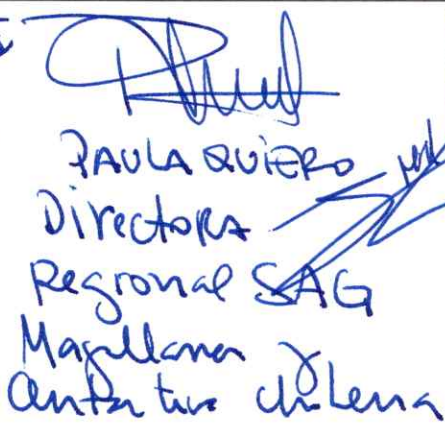 PAULA QUIERO
Directora
Regional SAG
Magallanes y
Antártica chilena